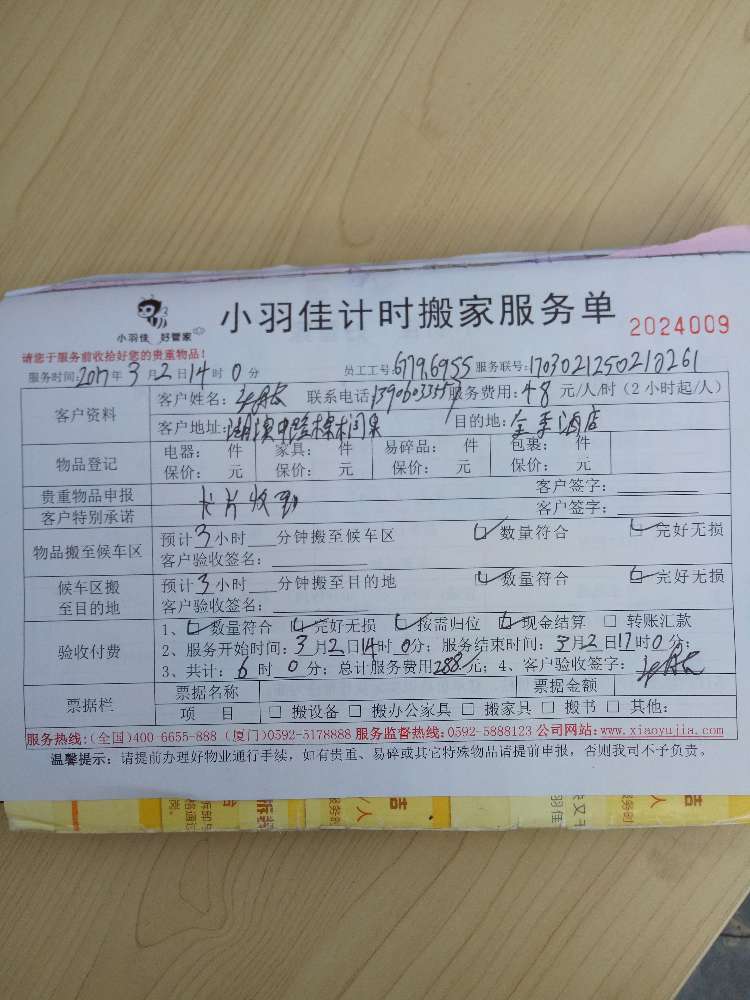 小羽佳 好管家
小羽佳计时搬家服务单
2024009
请您于服务前收拾好您的贵重物品!
服务时间:2017年3月2日14时0分 员工工号:6796955 服务联号:1703021250210261
客户资料
客户姓名: 联系电话: 服务费用:48元/人/时(2小时起/人)
客户地址: 目的地:全季酒店
物品登记
电器: 件 家具: 件 易碎品: 件 包裹: 件
保价: 元 保价: 元 保价: 元 保价: 元
贵重物品申报 客户签字:
客户特别承诺 客户签字:
卡片收到
物品搬至候车区
预计3小时 分钟搬至候车区 数量符合 完好无损
客户验收签名:
候车区搬至目的地
预计3小时 分钟搬至目的地 数量符合 完好无损
客户验收签名:
验收付费
1、数量符合 完好无损 按需归位 现金结算 □ 转账汇款
2、服务开始时间:3月2日14时0分;服务结束时间:3月2日17时0分;
3、共计:6时0分;总计服务费用288元;4、客户验收签字:
票据栏
票据名称 票据金额
项 目 □ 搬设备 □ 搬办公家具 □ 搬家具 □ 搬书 □ 其他:
服务热线:(全国)400-6655-888 (厦门)0592-5178888 服务监督热线:0592-5888123 公司网站:www.xiaoyujia.com
温馨提示:请提前办理好物业通行手续,如有贵重、易碎或其它特殊物品请提前申报,否则我司不予负责。